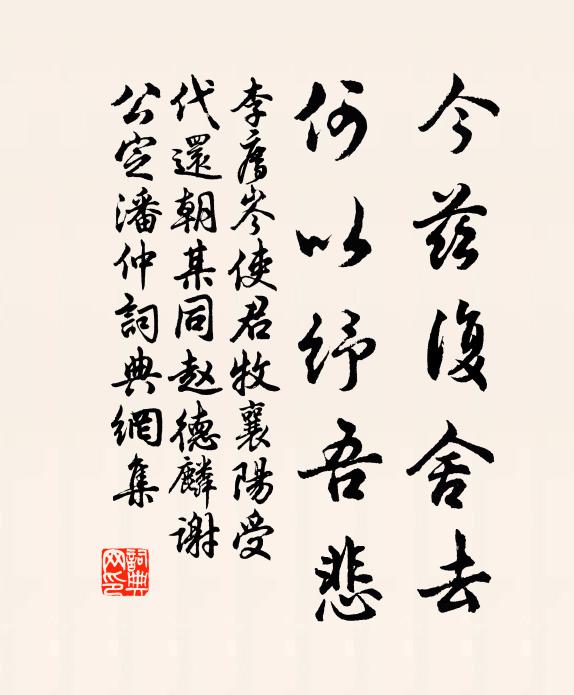 今茲復舍去
何以紓吾悲
李廌岑使君牧襄陽受
代還朝某同赵德麟謝
公定潘仲詞典網集
詞典网印